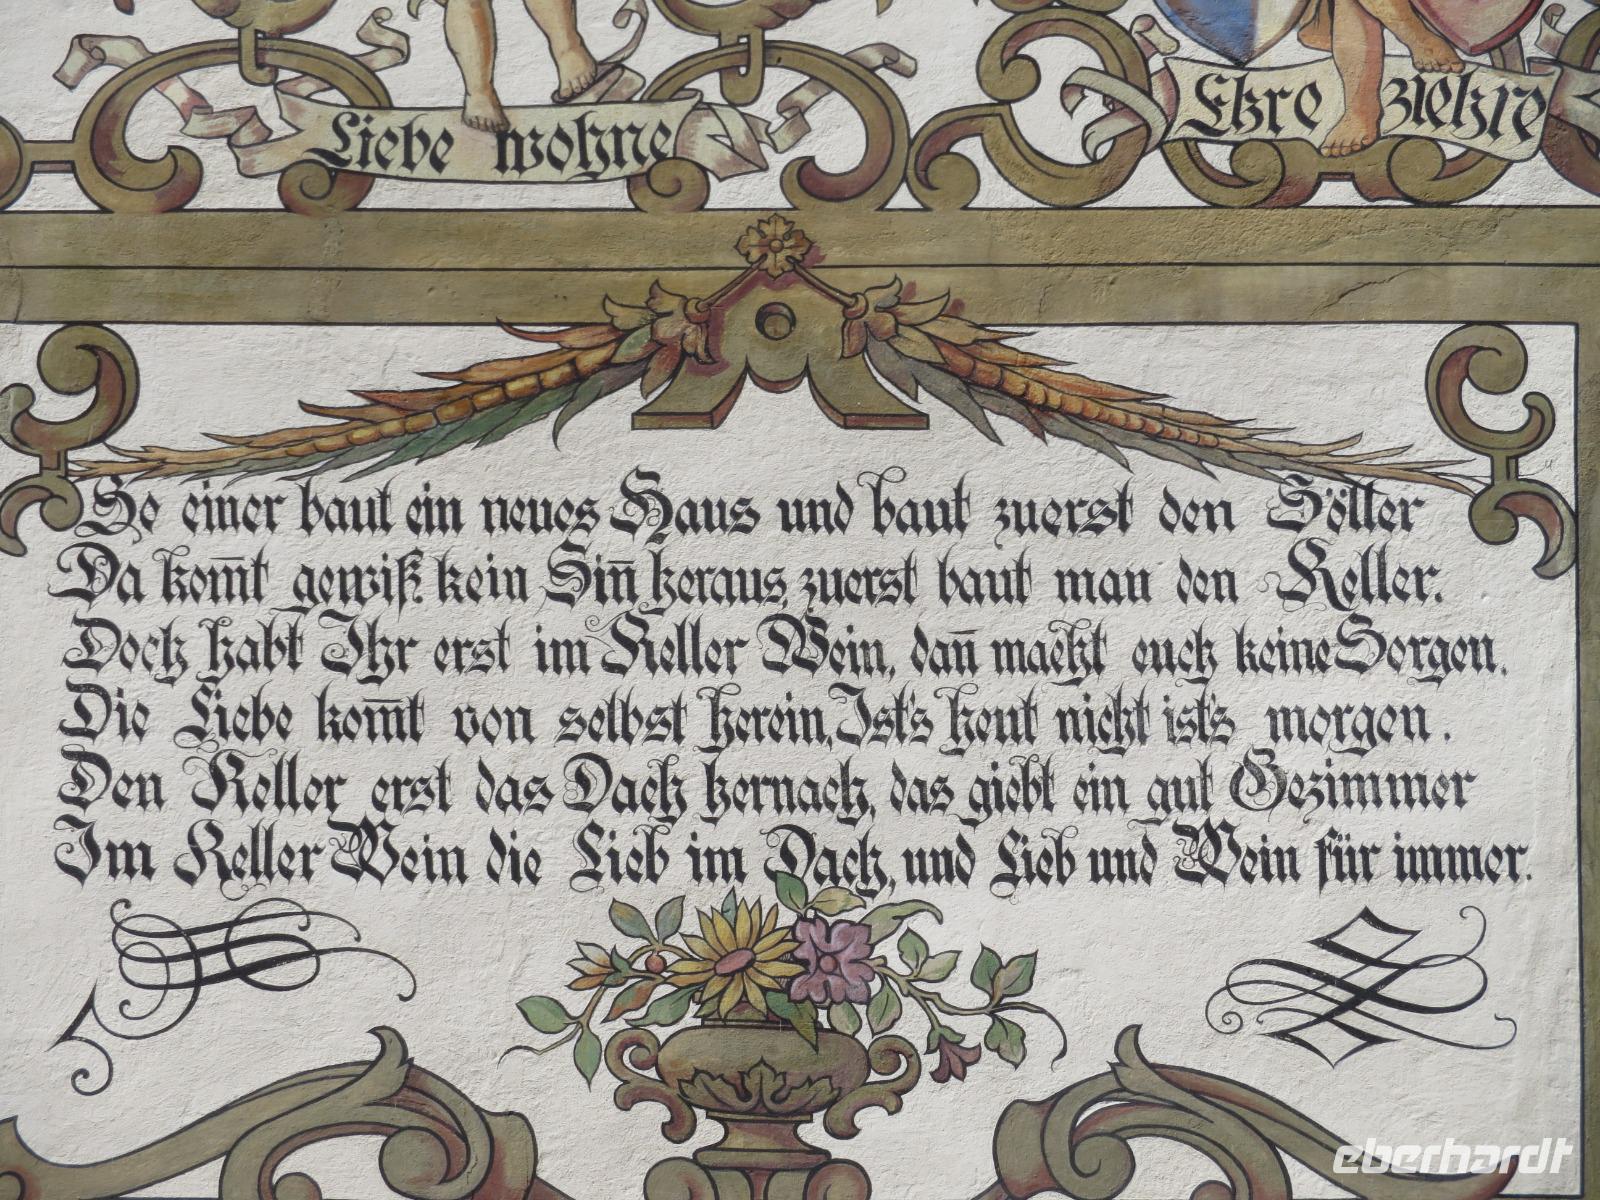 Liebe wohne
Ehre ziehre
So einer baut ein neues Haus und baut zuerst den Söller
Da kom̅t gewiß kein Sin̅ heraus, zuerst baut man den Keller.
Doch habt Ihr erst im Keller Wein, dan̅ macht euch keine Sorgen.
Die Liebe kom̅t von selbst herein, Ist's heut nicht ist's morgen.
Den Keller erst das Dach hernach, das giebt ein gut Gezimmer
Im Keller Wein die Lieb im Dach, und Lieb und Wein für immer.
eberhardt